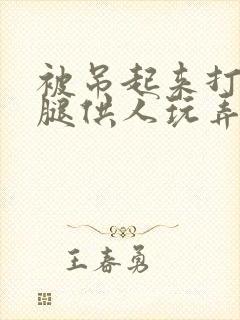 被吊起来打
腿供人玩弄
王春勇